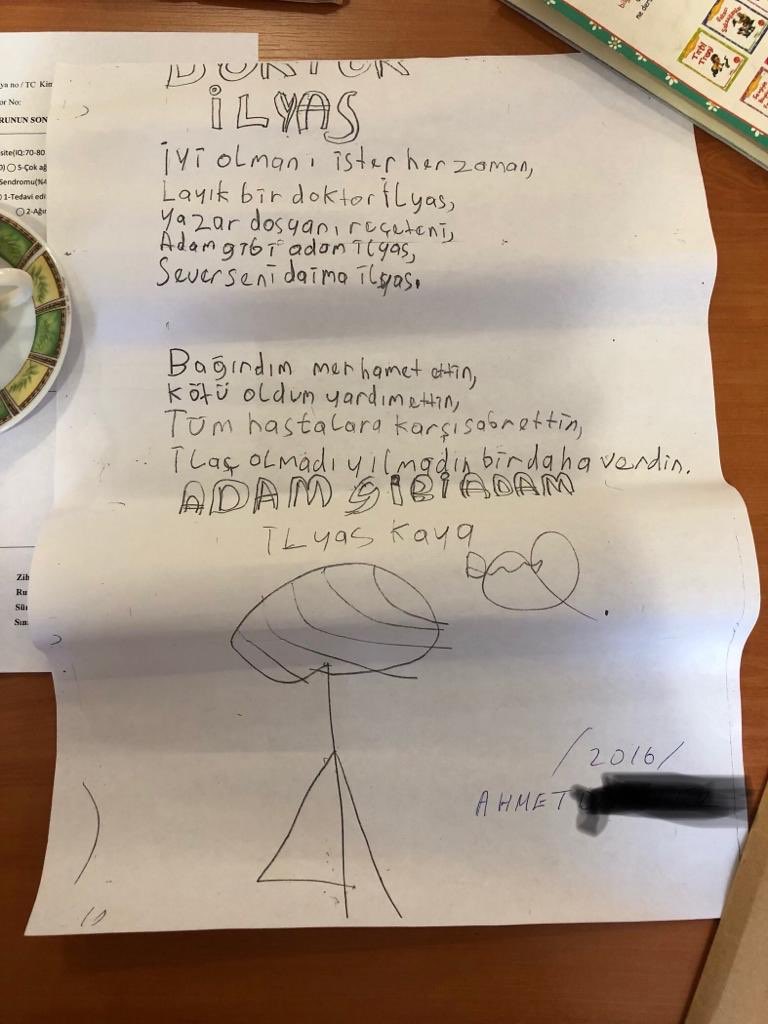 DOKTOR
İLYAS
İyi olmanı ister her zaman,
Layık bir doktor İlyas,
Yazar dosyanı reçeteni,
Adam gibi adam ilyas,
Sever seni daima ilyas.
Bağırdım merhamet ettin,
Kötü oldum yardım ettin,
Tüm hastalara karşı sabrettin,
İlaç olmadı yılmadın bir daha verdin.
ADAM GİBİ ADAM
İLyas Kaya
/2016/
AHMET
ya no / TC Kim
or No:
RUNUN SON
site(IQ:70-80
5-Çok ağ
Sendromu(%4
1-Tedavi edi
2-Ağır
Zih
Ru
Sür
Sın
ne ders